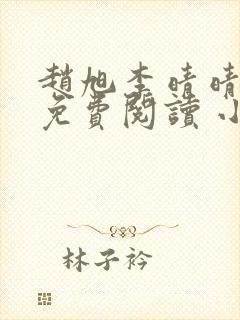 趙旭李晴晴
免費閱讀小
林子衿